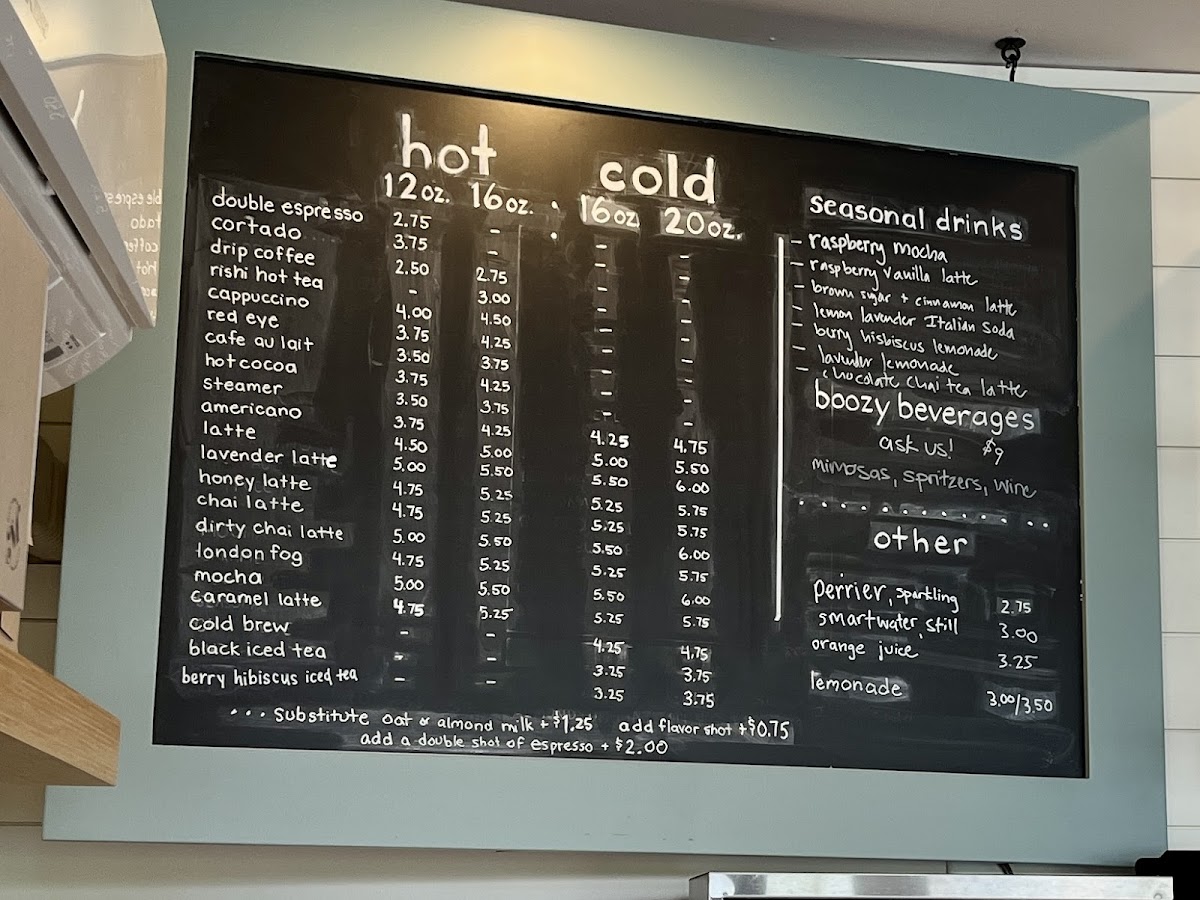 hot
12 oz. 16 oz.
cold
16 oz. 20 oz.
double espresso 2.75 - - -
cortado 3.75 - - -
drip coffee 2.50 2.75 - -
rishi hot tea - 3.00 - -
cappuccino 4.00 4.50 - -
red eye 3.75 4.25 - -
cafe au lait 3.50 3.75 - -
hot cocoa 3.75 4.25 - -
steamer 3.50 3.75 - -
americano 3.75 4.25 4.25 4.75
latte 4.50 5.00 5.00 5.50
lavender latte 5.00 5.50 5.50 6.00
honey latte 4.75 5.25 5.25 5.75
chai latte 4.75 5.25 5.25 5.75
dirty chai latte 5.00 5.50 5.50 6.00
london fog 4.75 5.25 5.25 5.75
mocha 5.00 5.50 5.50 6.00
caramel latte 4.75 5.25 5.25 5.75
cold brew - - 4.25 4.75
black iced tea - - 3.25 3.75
berry hibiscus iced tea - - 3.25 3.75
... Substitute oat or almond milk + $1.25 add flavor shot + $0.75
add a double shot of espresso + $2.00
seasonal drinks
- raspberry mocha
- raspberry vanilla latte
- brown sugar + cinnamon latte
- lemon lavender Italian Soda
- berry hisbiscus lemonade
- lavender lemonade
- chocolate chai tea latte
boozy beverages
ask us! $9
mimosas, spritzers, wine
other
perrier, sparkling 2.75
smartwater, still 3.00
orange juice 3.25
lemonade 3.00/3.50